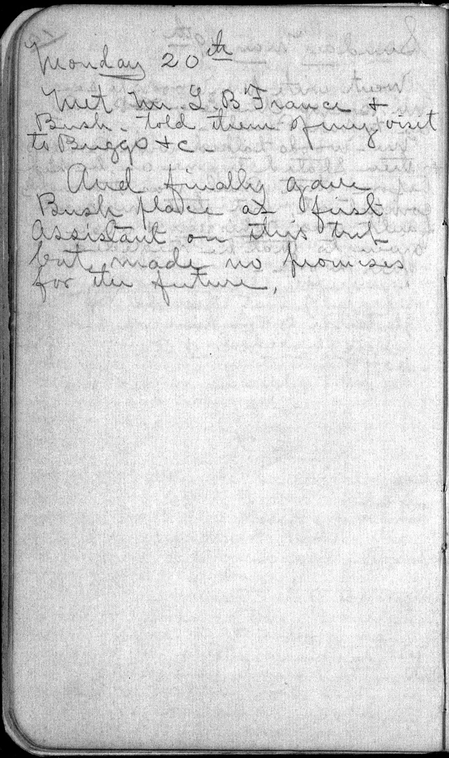 Monday 20th
Met Mr L. B France &
Bush. told them of my visit
to Buggs &c
And finally gave
Bush place as first
assistant on this trip
but made no promises
for the future.